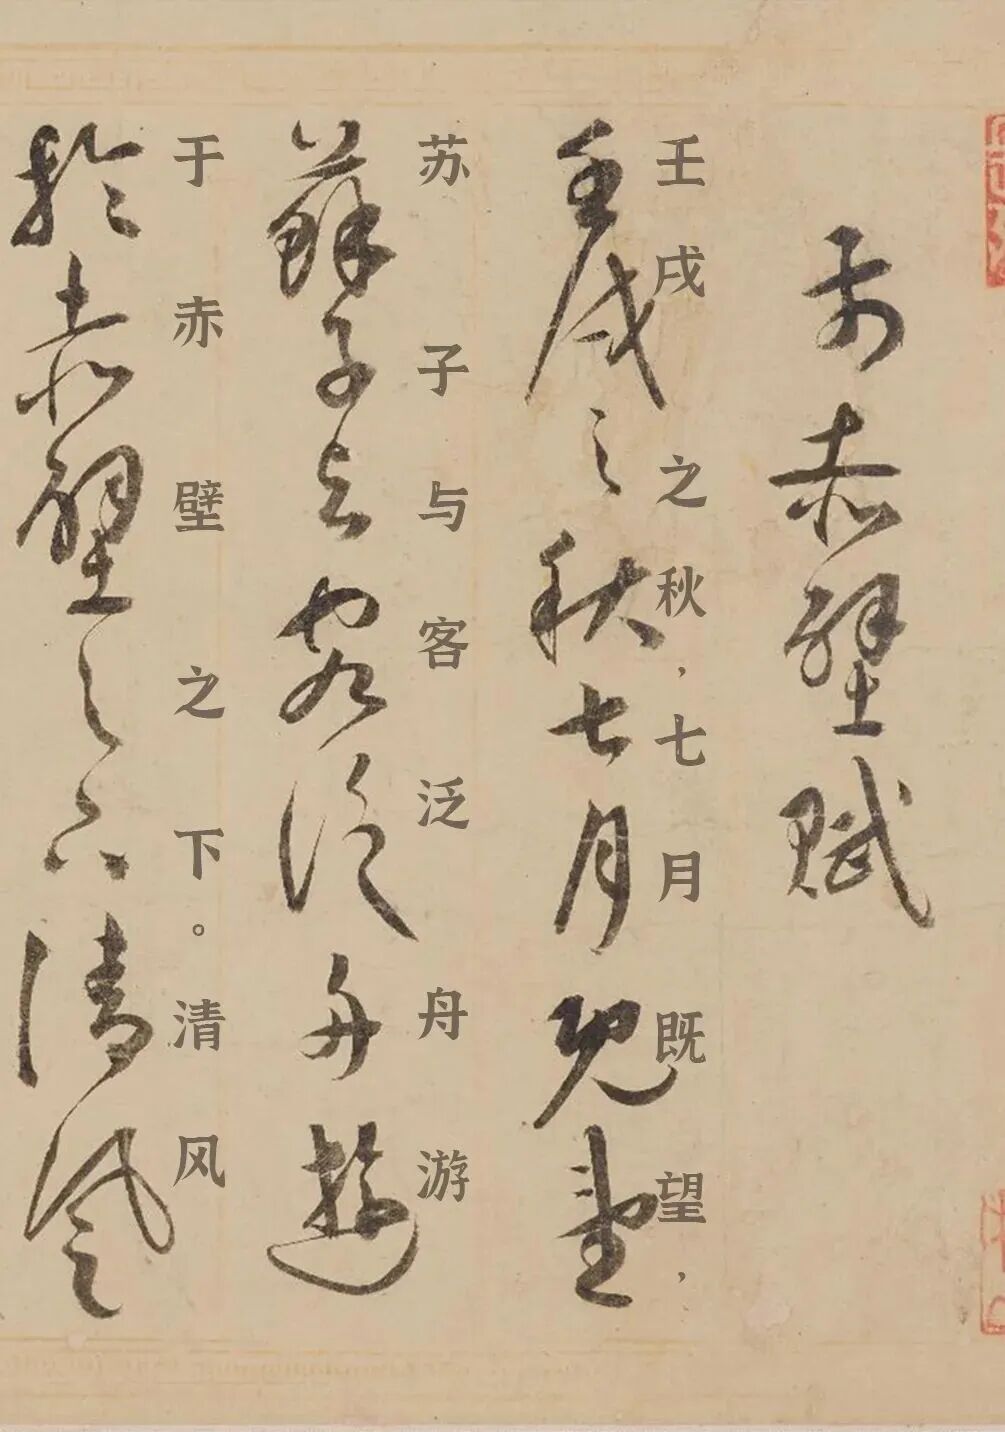 前赤壁賦
壬戌之秋，七月既望，
壬戌之秋七月既望
苏子与客泛舟游
蘇子与客泛舟遊
于赤壁之下。清风
於赤壁之下清風